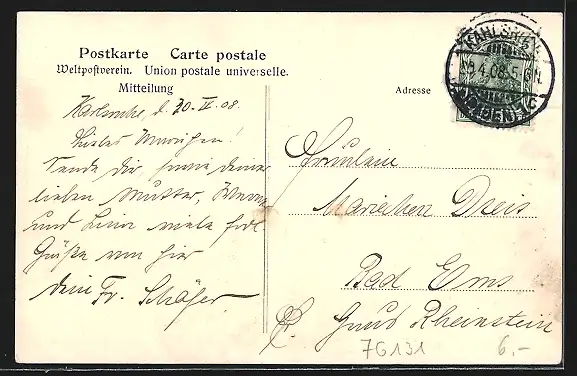 Postkarte Carte postale
Weltpostverein. Union postale universelle.
Mitteilung
Adresse
KARLSRUHE
4.08.5-6N.
(BADEN)
Karlsruhe, d. 20. IV. 08.
Liebes Mariechen!
Sende Dir, sowie deiner
lieben Mutter,
und viele herzl.
Grüße von hier
dein Fr. Schäfer.
Fräulein
Mariechen Dreis
Bad Ems
Haus Rheinstein
76131
6.-